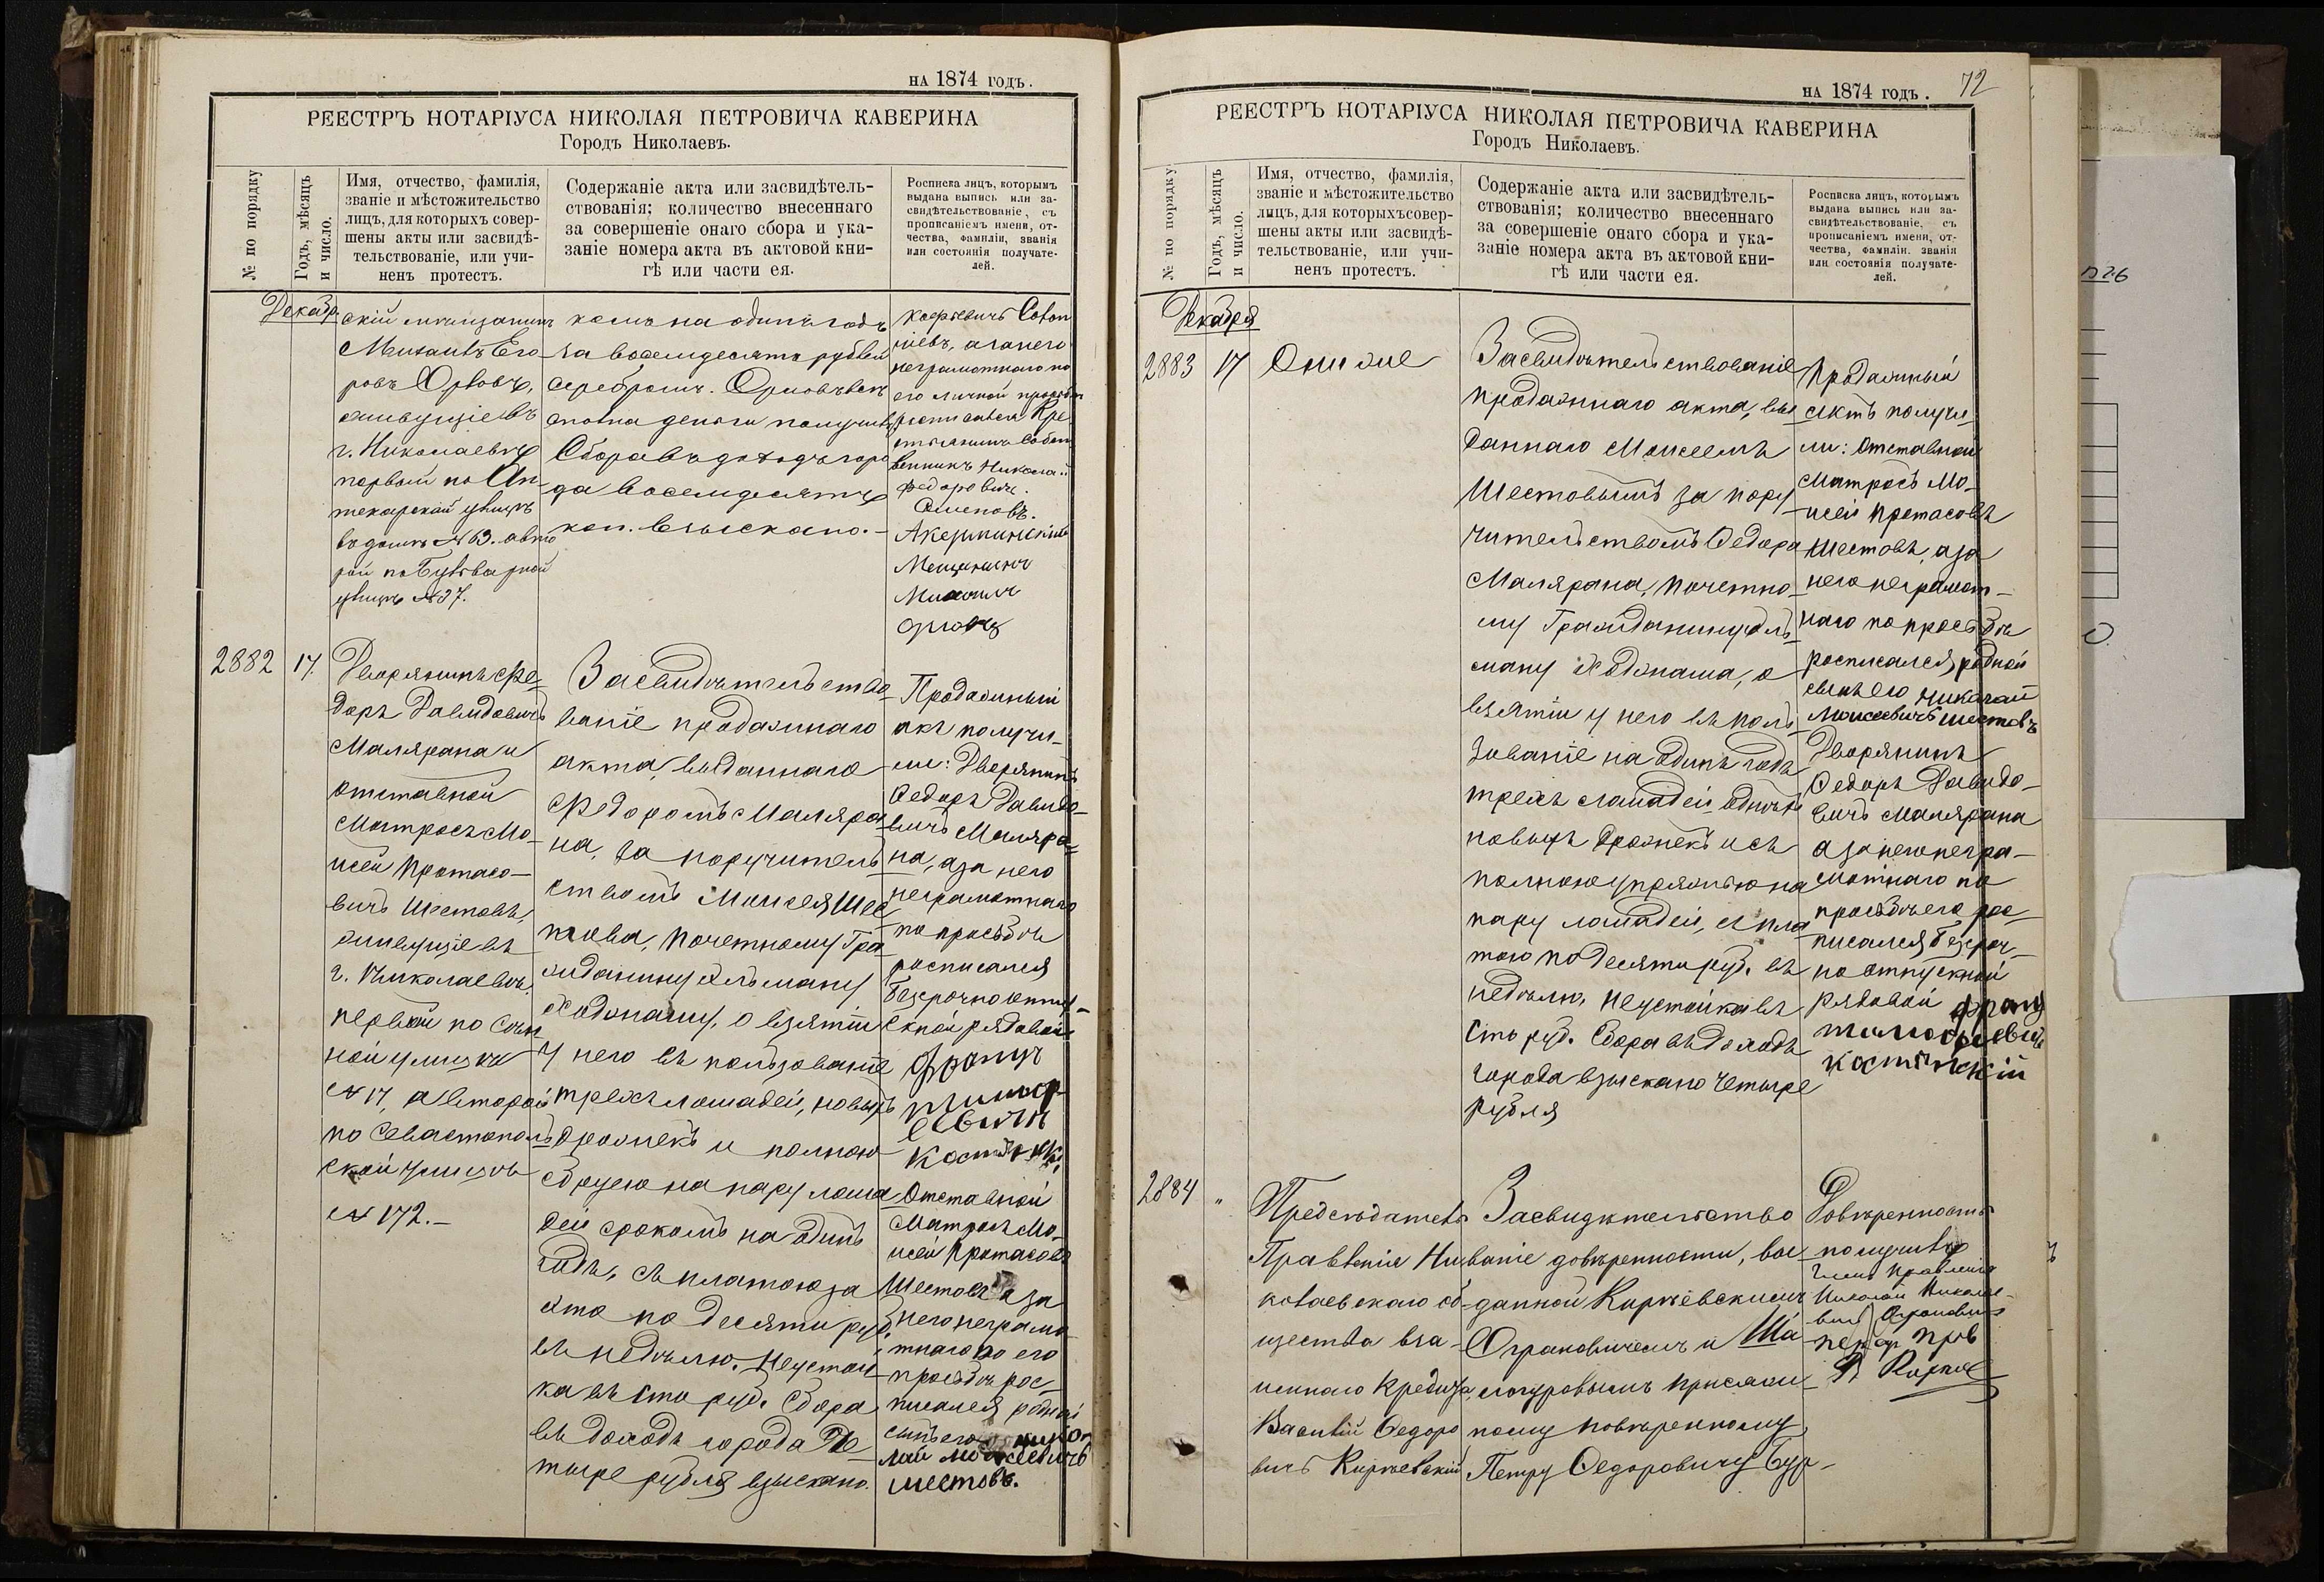 НА 1874 ГОДЪ.
РЕЕСТРЪ НОТАРІУСА НИКОЛАЯ ПЕТРОВИЧА КАВЕРИНА
Городъ Николаевъ.
№ по порядку
Годъ, мѣсяцъ
и число.
Имя, отчество, фамилія,
званіе и мѣстожительство
лицъ, для которыхъ совер-
шены акты или засвидѣ-
тельствованіе, или учи-
ненъ протестъ.
Содержаніе акта или засвидѣтель-
ствованія; количество внесеннаго
за совершеніе онаго сбора и ука-
заніе номера акта въ актовой кни-
гѣ или части ея.
Росписка лицъ, которымъ
выдана выпись или за-
свидѣтельствованіе, съ
прописаніемъ имени, от-
чества, фамиліи, званія
или состоянія получате-
лей.
Декабр.
скій мѣщанинъ
Михаилъ Его
ровъ Орловъ,
живущіе въ
г. Николаевѣ
первый по Ап-
текарской улицѣ
въ домѣ № 63. а вто
рой по Бульварной
улицѣ № 37.
на одинъ годъ
за восемдесятъ рублей
серебромъ. Орловъ
сполна деньги получилъ
Сбора въ доходъ горо
да восемдесятъ
коп. взыскано.-
неграмотнаго по
его личной прозьбѣ
росписался Кре
стьянинъ Собст
венникъ Николай
Федоровичъ
Мещанинъ
Михаилъ
Орловъ
2882
17.
Дворянинъ Фе-
доръ Давидовичъ
Малярана и
отставной
Матросъ Мо-
исей Протасо-
вичъ Шестовъ,
живущіе въ
г. Николаевѣ,
первый по
ной улицѣ
№ 17, а второй
по Севастополь
ской улицѣ
№ 172.-
Засвидѣтельство-
ваніе продажнаго
акта, выданнаго
Федоромъ Маляра-
на, за поручитель
ствомъ Моисея Шес
това, почетному Гра
жданину Гельману
Ходжашу, о взятіи
у него въ пользованіе
трехъ лошадей, новыхъ
дрожекъ и полною
сбрую на пару лоша
дей срокомъ на одинъ
годъ, съ платою за
это по десяти руб.
въ недѣлю. Неустой
ка въ сто руб. Сбора
въ доходъ города Че-
тыре рубля взыскано.
Продажный
акт получи-
ли: Дворянинъ
Федоръ Давидо-
вичъ Маляра-
на, а за него
неграмотнаго
по просьбѣ
росписался
Безсрочно отпу-
скной рядовой
Францъ
Отставной
Матросъ Мо-
исей Протасовъ
Шестовъ а за
него неграмо
тнаго по его
просьбѣ рос-
писался родной
сынъ его Нико
лай Моисеевичъ
Шестовъ.
НА 1874 ГОДЪ.
72
РЕЕСТРЪ НОТАРІУСА НИКОЛАЯ ПЕТРОВИЧА КАВЕРИНА
Городъ Николаевъ.
№ по порядку
Годъ, мѣсяцъ
и число.
Имя, отчество, фамилія,
званіе и мѣстожительство
лицъ, для которыхъ совер-
шены акты или засвидѣ-
тельствованіе, или учи-
ненъ протестъ.
Содержаніе акта или засвидѣтель-
ствованія; количество внесеннаго
за совершеніе онаго сбора и ука-
заніе номера акта въ актовой кни-
гѣ или части ея.
Росписка лицъ, которымъ
выдана выпись или за-
свидѣтельствованіе, съ
прописаніемъ имени, от-
чества, фамиліи, званія
или состоянія получате-
лей.
Декабря
2883
17
Они же
Засвидѣтельствованіе
продажнаго акта, вы
даннаго Моисеемъ
Шестовымъ за пору
чительствомъ Федора
Малярана, почетно-
му Гражданину Гель
ману Ходжаша, о
взятіи у него въ поль
зованіе на одинъ годъ
трехъ лошадей, однѣхъ
новыхъ дрожекъ и съ
полною упряжью на
пару лошадей, съ пла
тою по десяти руб. въ
недѣлю, неустойка въ
сто руб. Сбора въ доходъ
города взыскано четыре
рубля
Продажный
актъ получи
ли: Отставной
Матросъ Мо-
исей Протасовъ
Шестовъ, а за
него неграмот-
наго по просьбѣ
росписался родной
сынъ его Николай
Моисеевичъ Шестовъ
Дворянинъ
Федоръ Давидо-
вичъ Малярана
а за него негра-
мотнаго по
просьбѣ его рос-
писался безсроч-
но отпускной
рядовой Францъ
2884
"
Предсѣдатель
Правленія Ни
колаевскаго об-
щества вза-
имнаго Кредита,
Василій Федоро
вичъ Кирѣевскій
Засвидѣтельство
ваніе довѣренности, вы
данной Кирѣевскимъ
и Ша
пошу повѣренному
Петру Федоровичу Бур-
Довѣренность
получилъ
Членъ Правленія
Николай Николае-
вичъ